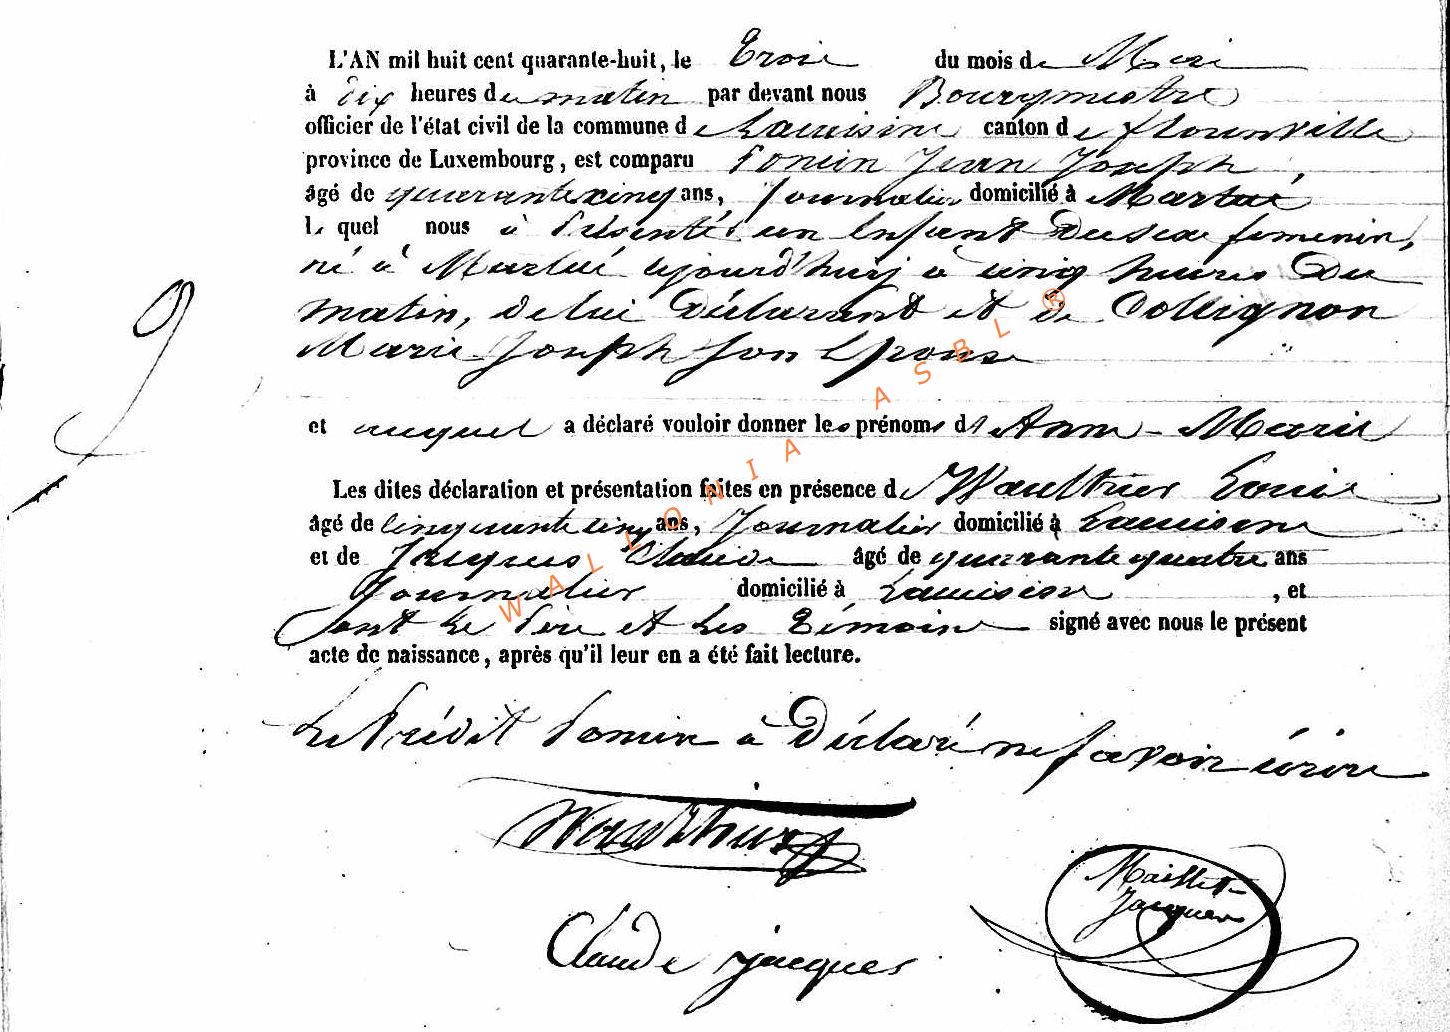 L'AN mil huit cent quarante-huit, le Trois du mois de Mai
à dix heures du matin par devant nous Bourgmestre
officier de l'état civil de la commune de Lacuisine canton de florenville
province de Luxembourg, est comparu Poncin Jean Joseph,
âgé de quarante cinq ans, journalier domicilié à Martué
Le quel nous à Présenté un Enfant Du sexe feminin,
né à Martué aujourd'huij à cinq heures Du
matin, de lui Déclarant et de Collignon
Marie Joseph Son Epouse
9
et auquel a déclaré vouloir donner les prénoms d' Anne - Marie
Les dites déclaration et présentation faites en présence de Waulthier Louis
âgé de cinquante cinq ans, Journalier domicilié à Lacuisine
et de Jacques Claude âgé de quarante quatre ans
Journalier domicilié à Lacuisine, et
Sont Le Père et Les Témoins signé avec nous le présent
acte de naissance, après qu'il leur en a été fait lecture.
Le Prédit Poncin à Déclaré ne Savoir écrire
Waulthier
Maillet-
Jacques
Claude jacques
WALLONIA ASBL ®